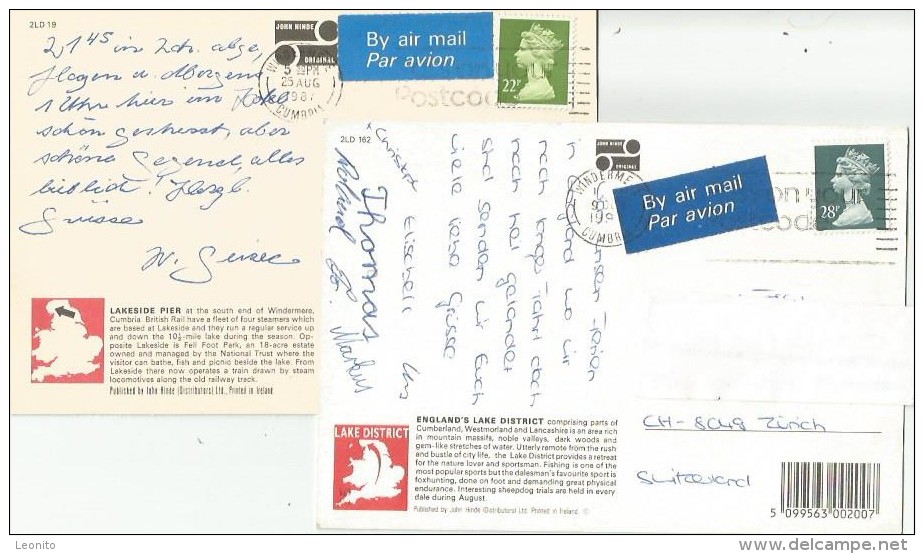 2LD 19
JOHN HINDE
ORIGINAL
By air mail
Par avion
22P
5 PM
25 AUG
CUMBRIA
Postcode
Morgens
1 Uhr hier im
schön aber
schöne Gegend, alles
Herzl.
Grüsse
LAKESIDE PIER at the south end of Windermere,
Cumbria. British Rail have a fleet of four steamers which
are based at Lakeside and they run a regular service up
and down the 10½-mile lake during the season. Op-
posite Lakeside is Fell Foot Park, an 18-acre estate
owned and managed by the National Trust where the
visitor can bathe, fish and picnic beside the lake. From
Lakeside there now operates a train drawn by steam
locomotives along the old railway track.
Published by John Hinde (Distributors) Ltd., Printed in Ireland.
2LD 162
JOHN HINDE
ORIGINAL
By air mail
Par avion
28P
WINDERMERE
CUMBRIA
Ferien
in England wo wir
nach langer Fahrt doch
noch heil gelandet
sind senden wir Euch
viele liebe Grüsse
Elisabeth
Christert
Thomas
Roland
Markus
LAKE DISTRICT
ENGLAND'S LAKE DISTRICT comprising parts of
Cumberland, Westmorland and Lancashire is an area rich
in mountain massifs, noble valleys, dark woods and
gem-like stretches of water. Utterly remote from the rush
and bustle of city life, the Lake District provides a retreat
for the nature lover and sportsman. Fishing is one of the
most popular sports but the dalesman's favourite sport is
foxhunting, done on foot and demanding great physical
endurance. Interesting sheepdog trials are held in every
dale during August.
Published by John Hinde (Distributors) Ltd. Printed in Ireland. ©
CH-8048 Zürich
Switzerland
5 099563 002007
Leonito
delcampe.net